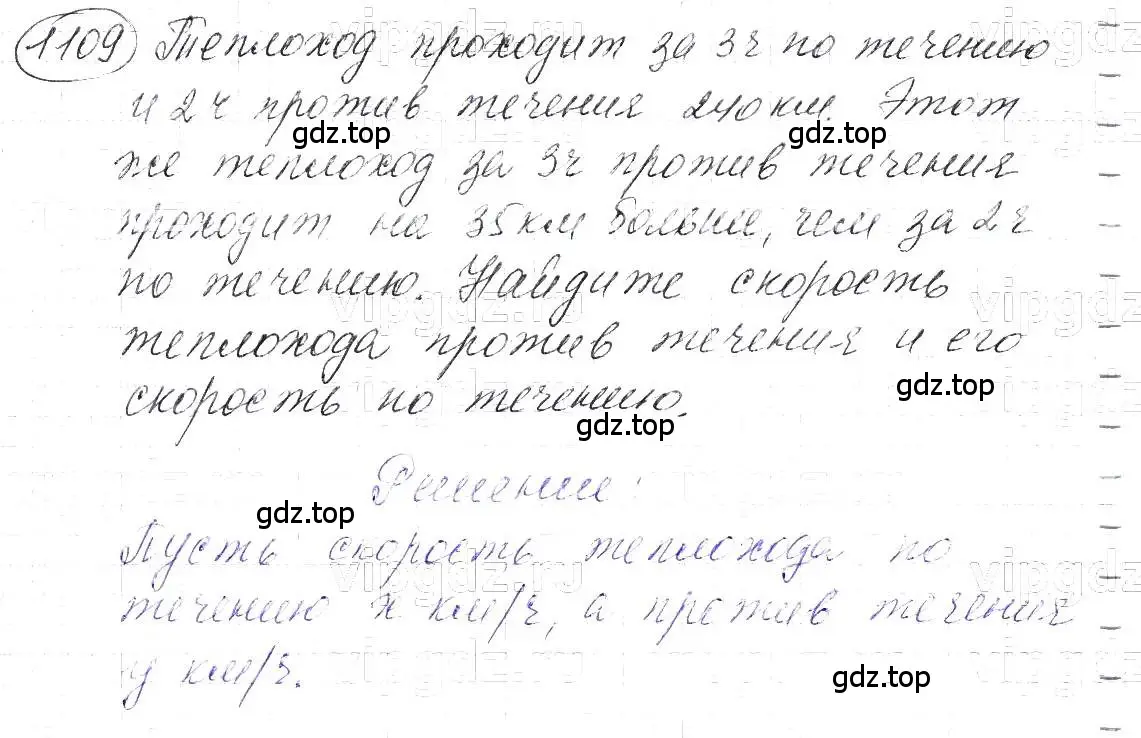 1109 Теплоход проходит за 3ч по течению
и 2ч против течения 240 км. Этот
же теплоход за 3ч против течения
проходит на 35 км больше, чем за 2ч
по течению. Найдите скорость
теплохода против течения и его
скорость по течению.
Решение:
Пусть скорость теплохода по
течению х км/ч, а против течения
у км/ч.
vipgdz.ru
gdz.top
gdz.top
gdz.top
gdz.top
gdz.top
gdz.top